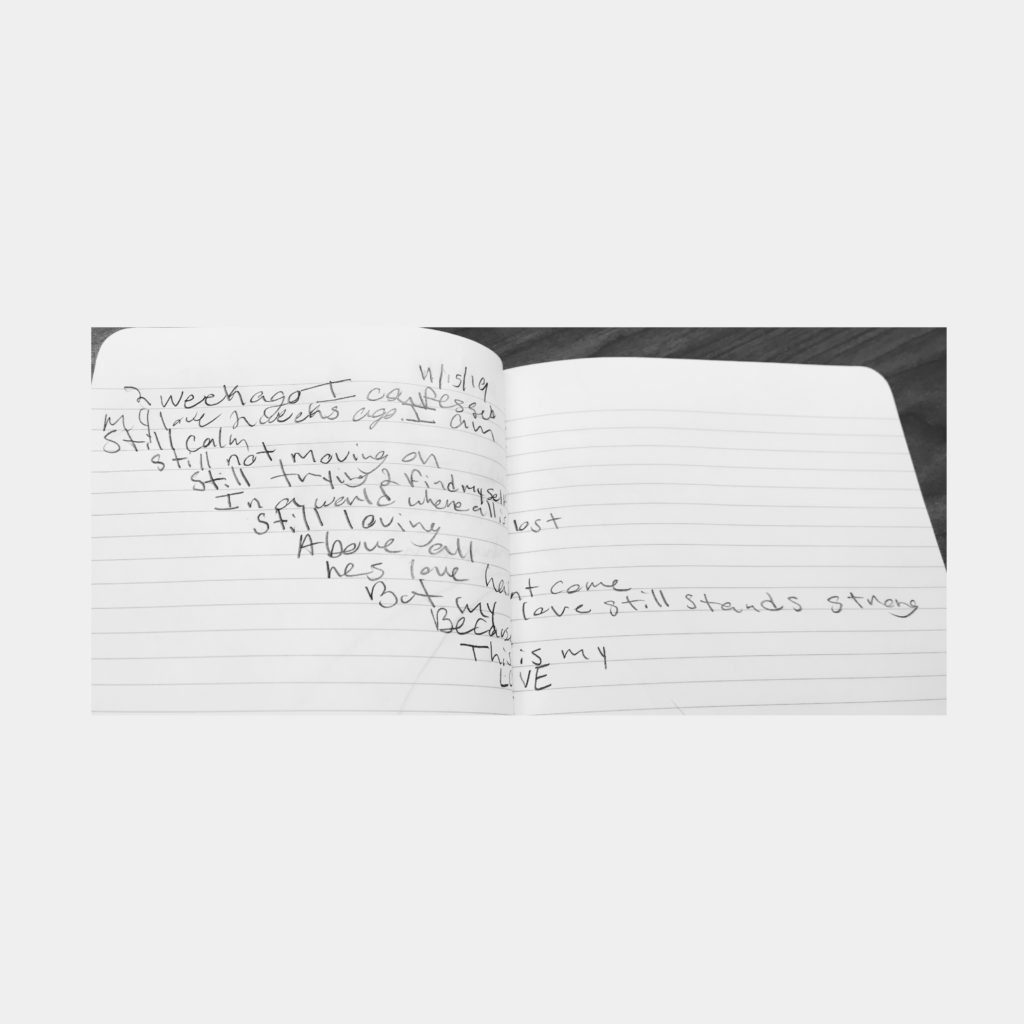 11/15/19
2 week ago I confesses
my love 2 weeks ago. I am
Still calm
still not moving on
still trying 2 find myself
In a world where all is lost
still loving
Above all
hes love haint come
But my love still stands strong
Because
This is my
LOVE